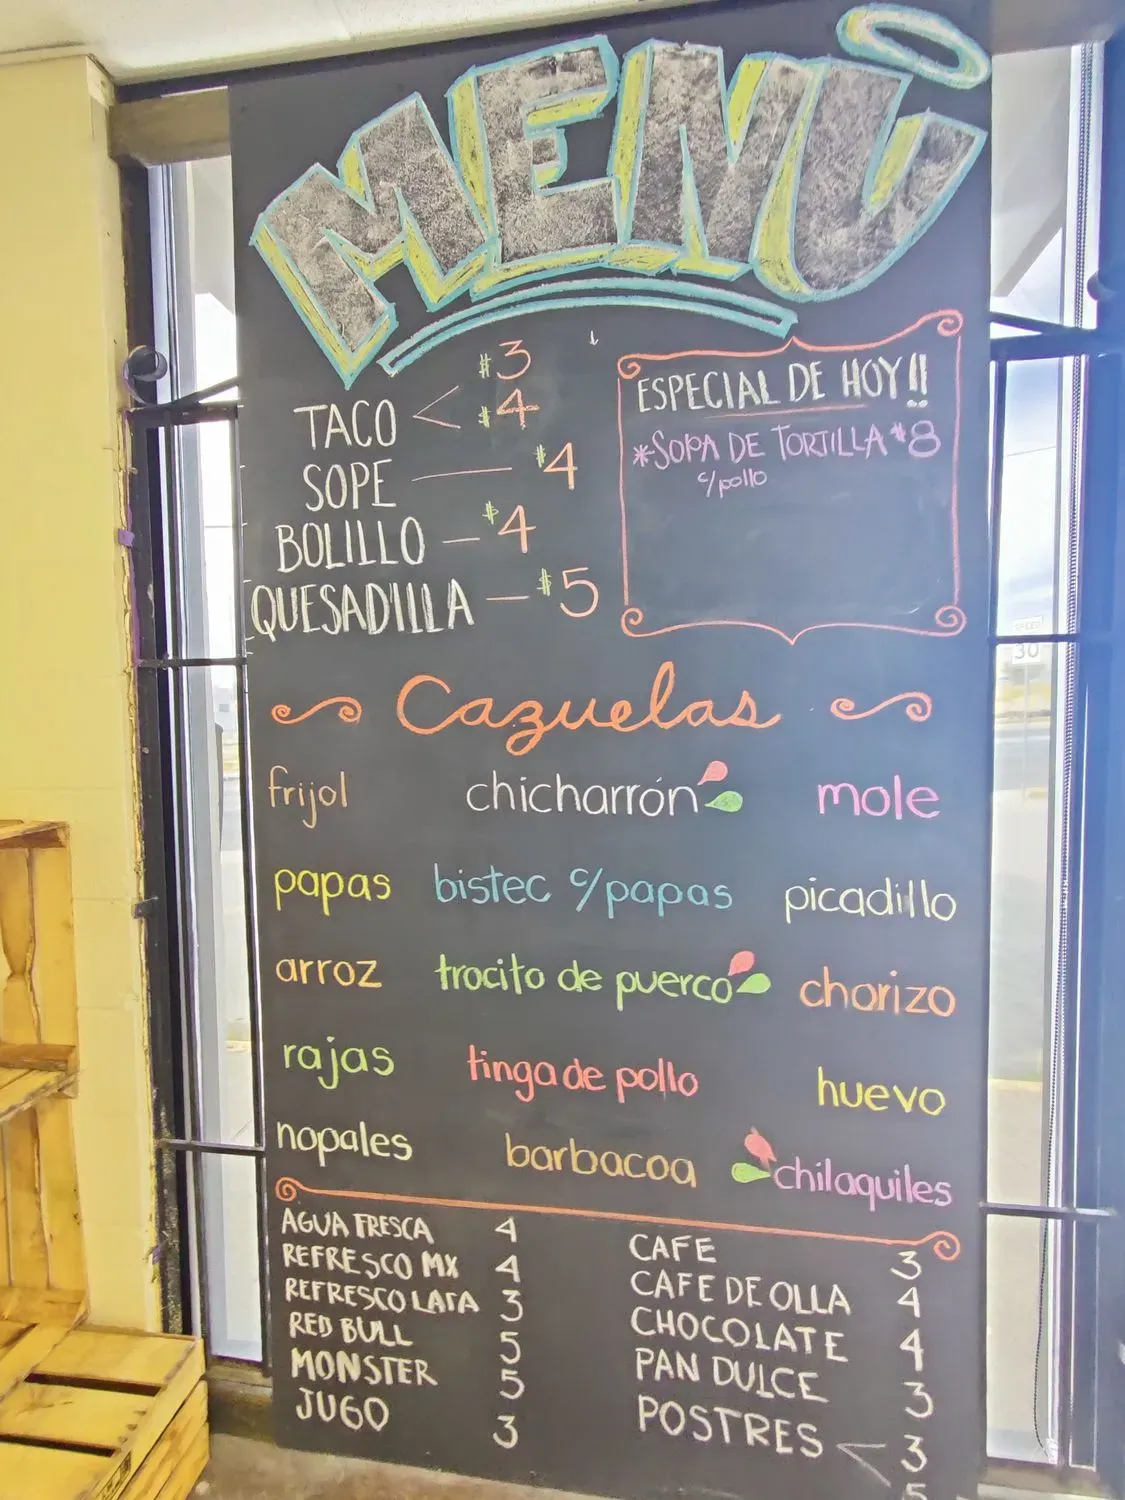 MENÚ
$3
TACO $4
SOPE $4
BOLILLO $4
QUESADILLA $5
ESPECIAL DE HOY!!
*SOPA DE TORTILLA $8
c/pollo
Cazuelas
frijol chicharrón mole
papas bistec c/papas picadillo
arroz trocito de puerco chorizo
rajas tinga de pollo huevo
nopales barbacoa chilaquiles
AGUA FRESCA 4
REFRESCO MX 4
REFRESCO LATA 3
RED BULL 5
MONSTER 5
JUGO 3
CAFE 3
CAFE DE OLLA 4
CHOCOLATE 4
PAN DULCE 3
POSTRES 3
5
SPEED
30